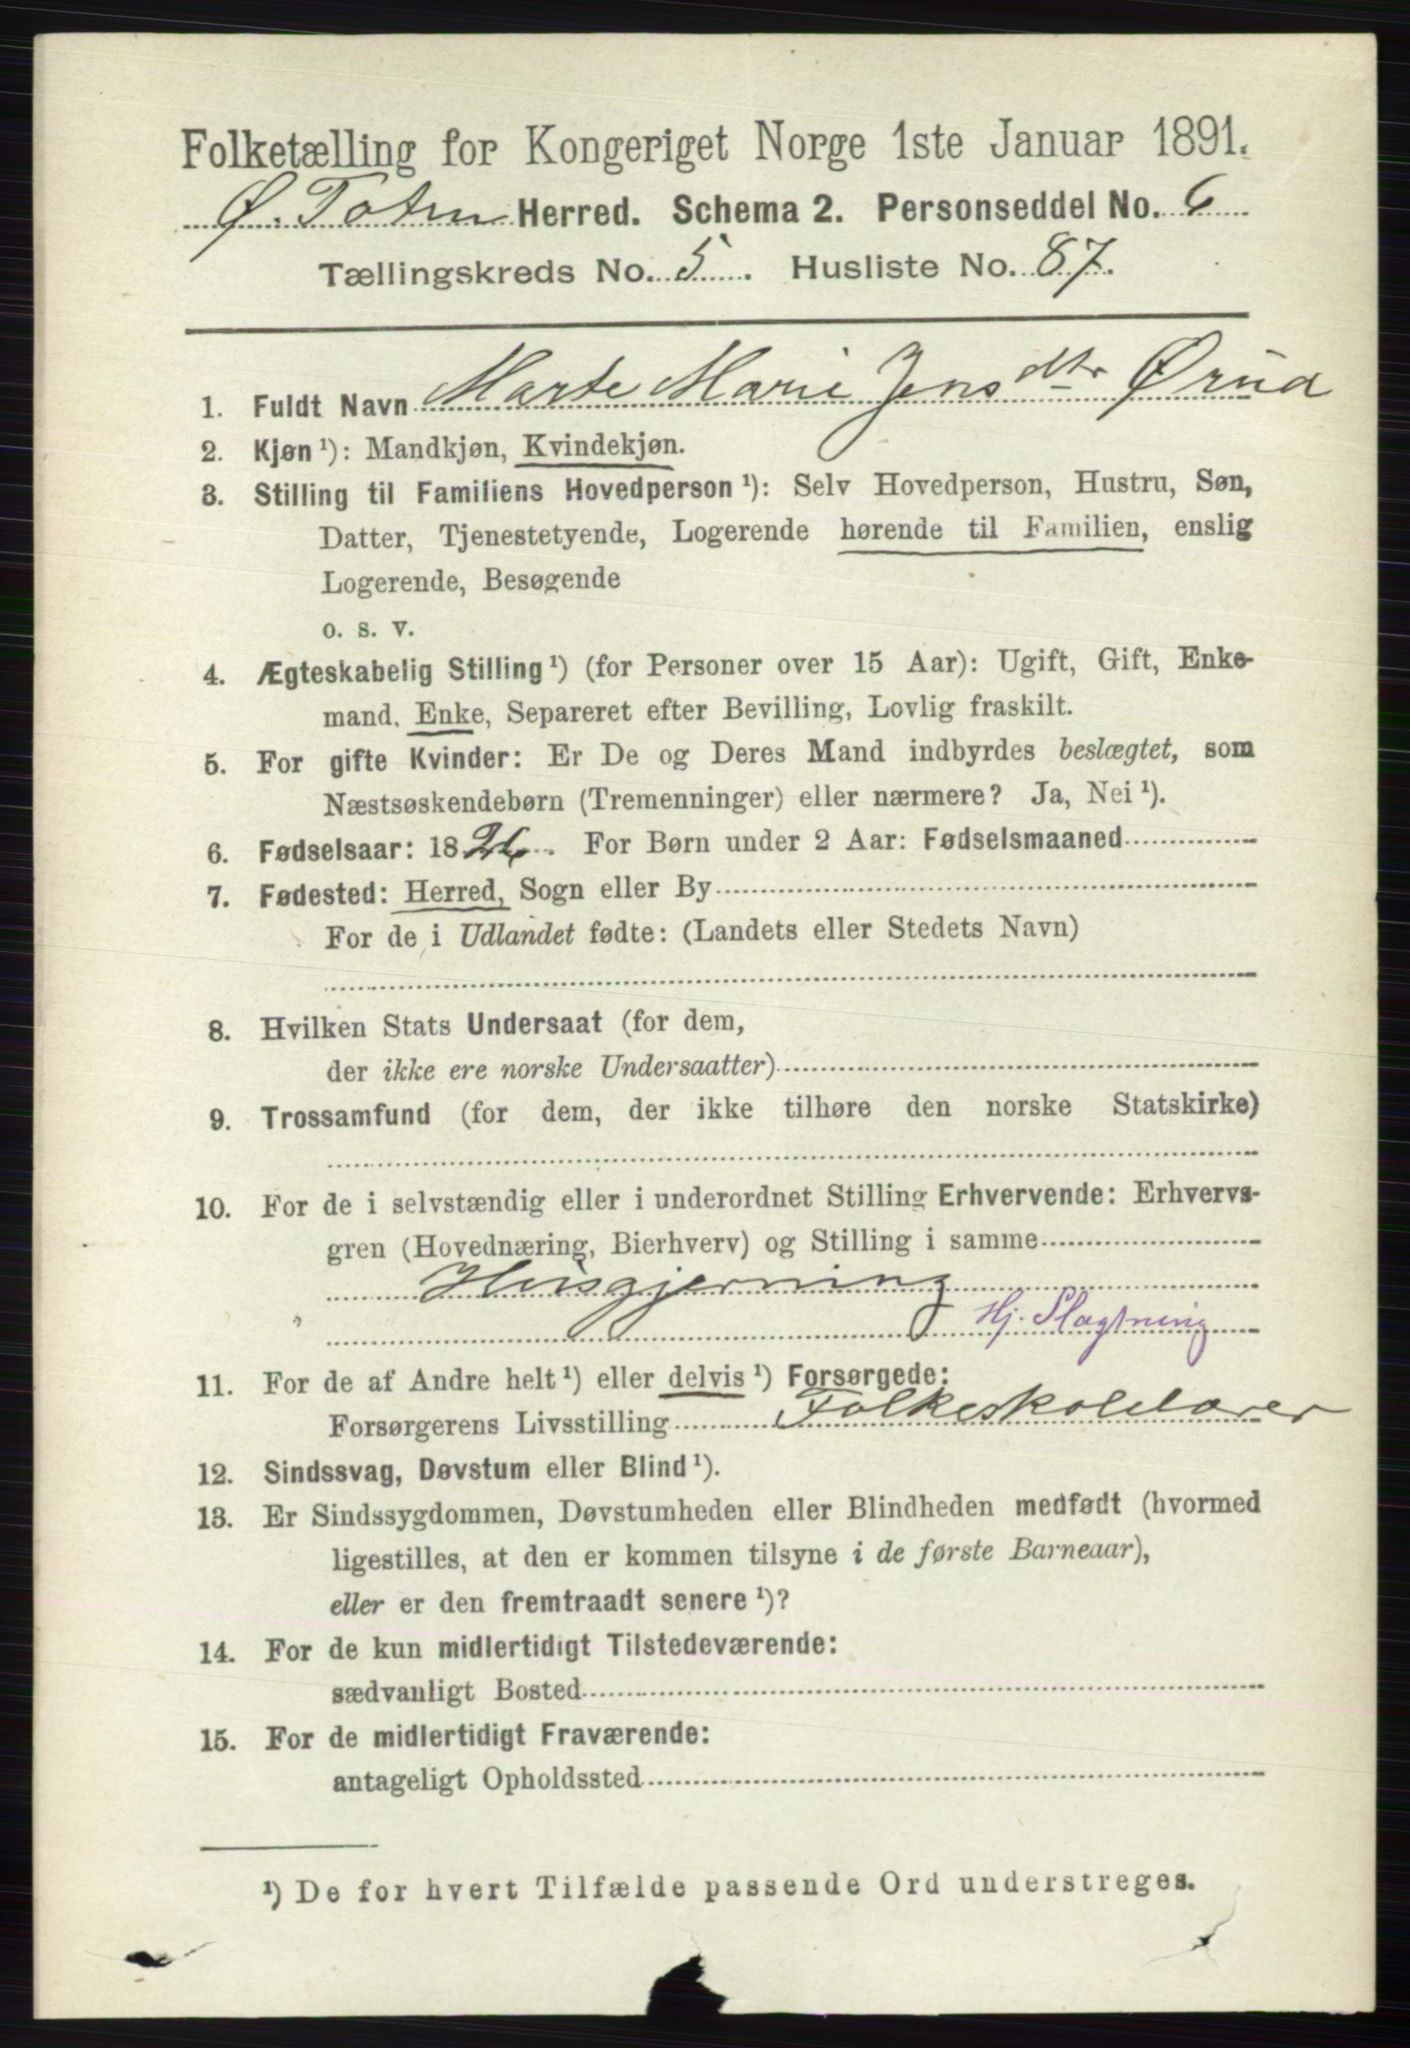 Folketælling for Kongeriget Norge 1ste Januar 1891.
Ø. Toten Herred. Schema 2. Personseddel No. 6
Tællingskreds No. 5. Husliste No. 87.
1. Fuldt Navn Marte Marie Jensdtr Ørud
2. Kjøn ¹): Mandkjøn, Kvindekjøn.
3. Stilling til Familiens Hovedperson ¹): Selv Hovedperson, Hustru, Søn,
Datter, Tjenestetyende, Logerende hørende til Familien, enslig
Logerende, Besøgende
o. s. v.
4. Ægteskabelig Stilling ¹) (for Personer over 15 Aar): Ugift, Gift, Enke-
mand, Enke, Separeret efter Bevilling, Lovlig fraskilt.
5. For gifte Kvinder: Er De og Deres Mand indbyrdes beslægtet, som
Næstsøskendebørn (Tremenninger) eller nærmere? Ja, Nei ¹).
6. Fødselsaar: 1826. For Børn under 2 Aar: Fødselsmaaned
7. Fødested: Herred, Sogn eller By
For de i Udlandet fødte: (Landets eller Stedets Navn)
8. Hvilken Stats Undersaat (for dem,
der ikke ere norske Undersaatter)
9. Trossamfund (for dem, der ikke tilhøre den norske Statskirke)
10. For de i selvstændig eller i underordnet Stilling Erhvervende: Erhvervs-
gren (Hovednæring, Bierhverv) og Stilling i samme
Husgjerning
Hj. Slagtning
11. For de af Andre helt ¹) eller delvis ¹) Forsørgede:
Forsørgerens Livsstilling Folkeskolelærer
12. Sindssvag, Døvstum eller Blind ¹).
13. Er Sindssygdommen, Døvstumheden eller Blindheden medfødt (hvormed
ligestilles, at den er kommen tilsyne i de første Barneaar),
eller er den fremtraadt senere ¹)?
14. For de kun midlertidigt Tilstedeværende:
sædvanligt Bosted
15. For de midlertidigt Fraværende:
antageligt Opholdssted
¹) De for hvert Tilfælde passende Ord understreges.